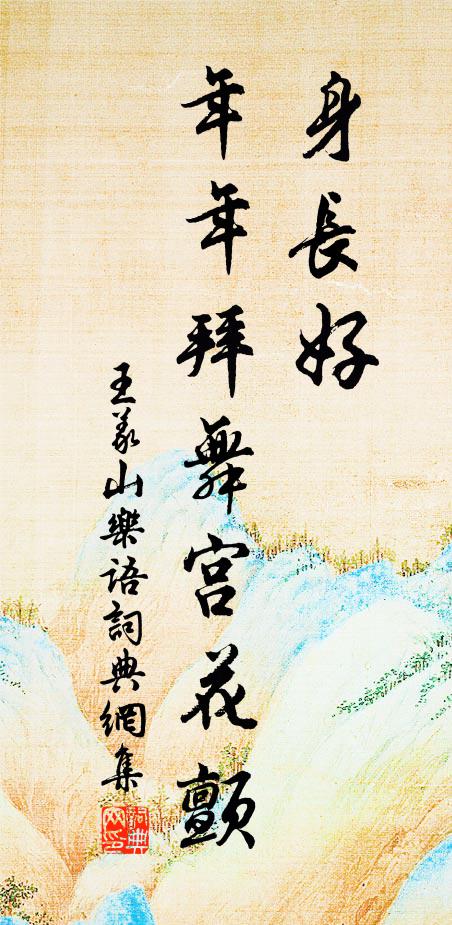 身長好
年年拜舞宮花顫
王義山樂語詞典網集
詞典網印